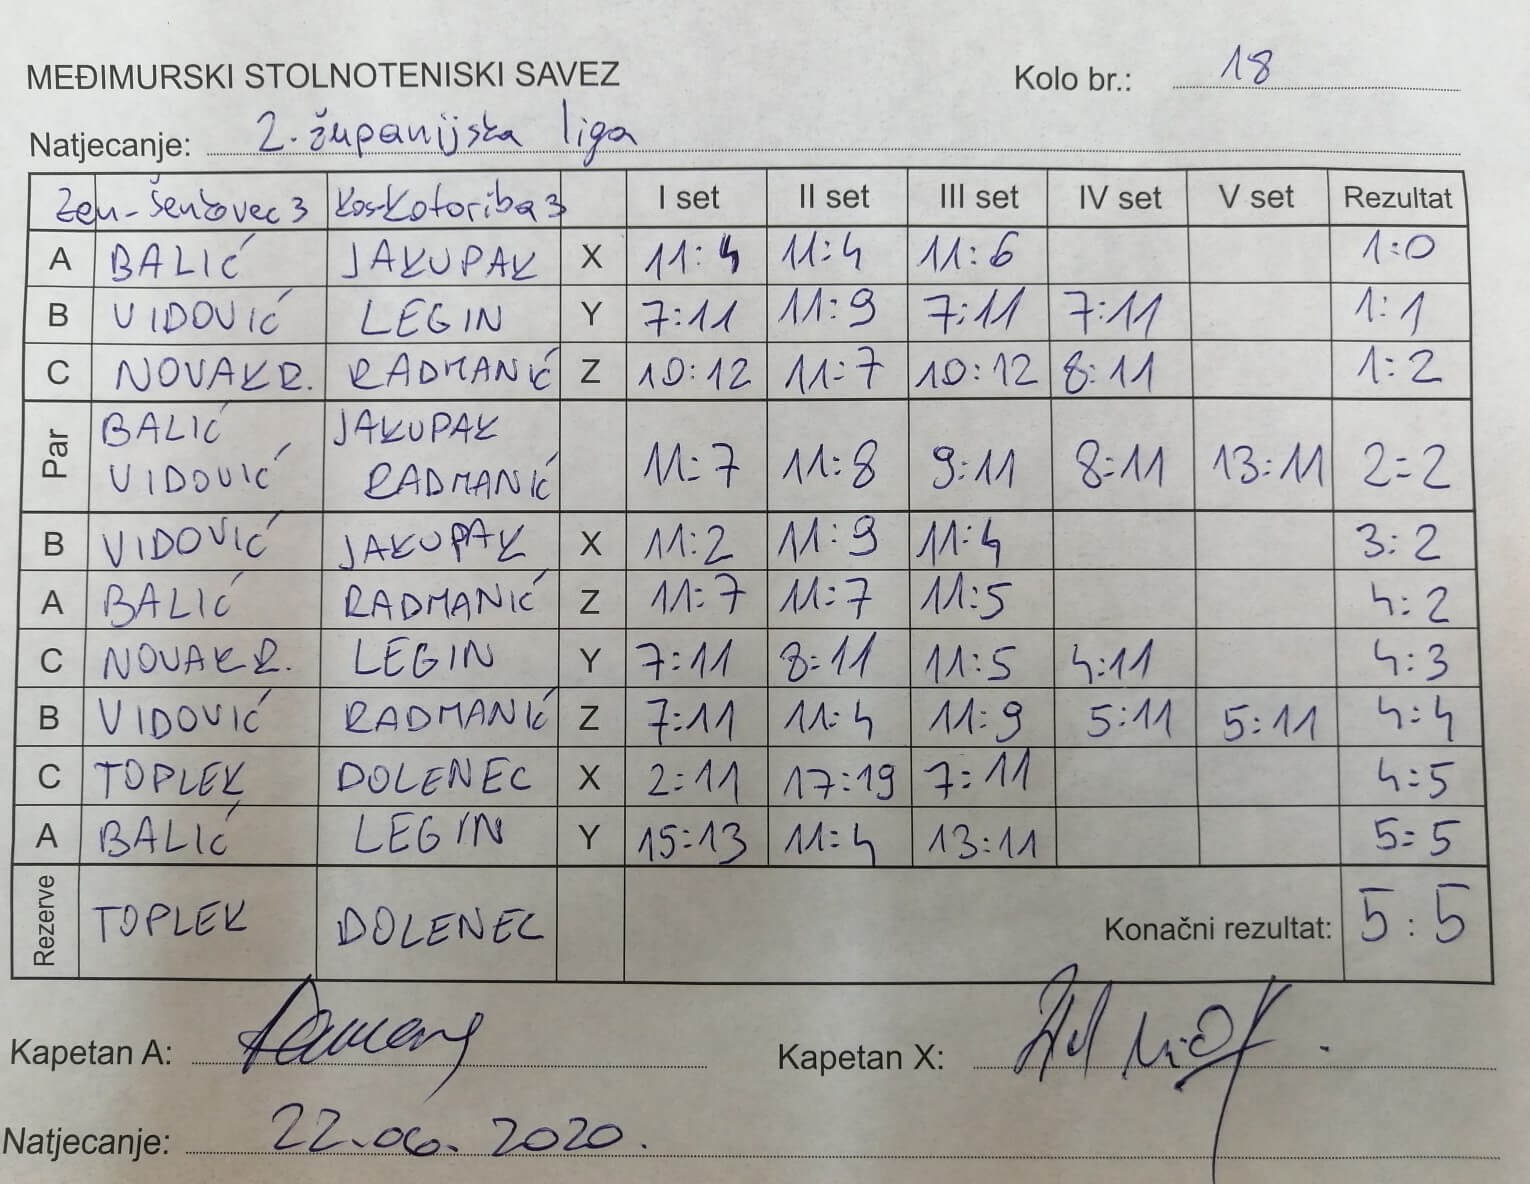 MEĐIMURSKI STOLNOTENISKI SAVEZ Kolo br.: 18
Natjecanje: 2. županijska liga
Zeu-Šenkovec 3 Kos-Kotoriba 3 I set II set III set IV set V set Rezultat
A BALIĆ JAKUPAK X 11:4 11:4 11:6 1:0
B VIDOVIĆ LEGIN Y 7:11 11:9 7:11 7:11 1:1
C NOVAK R. RADMANIĆ Z 10:12 11:7 10:12 8:11 1:2
Par BALIĆ JAKUPAK
VIDOVIĆ RADMANIĆ 11:7 11:8 9:11 8:11 13:11 2:2
B VIDOVIĆ JAKUPAK X 11:2 11:9 11:4 3:2
A BALIĆ RADMANIĆ Z 11:7 11:7 11:5 4:2
C NOVAK R. LEGIN Y 7:11 8:11 11:5 4:11 4:3
B VIDOVIĆ RADMANIĆ Z 7:11 11:4 11:9 5:11 5:11 4:4
C TOPLEK DOLENEC X 2:11 17:19 7:11 4:5
A BALIĆ LEGIN Y 15:13 11:4 13:11 5:5
Rezerve TOPLEK DOLENEC Konačni rezultat: 5:5
Kapetan A: Kapetan X:
Natjecanje: 22.06.2020.